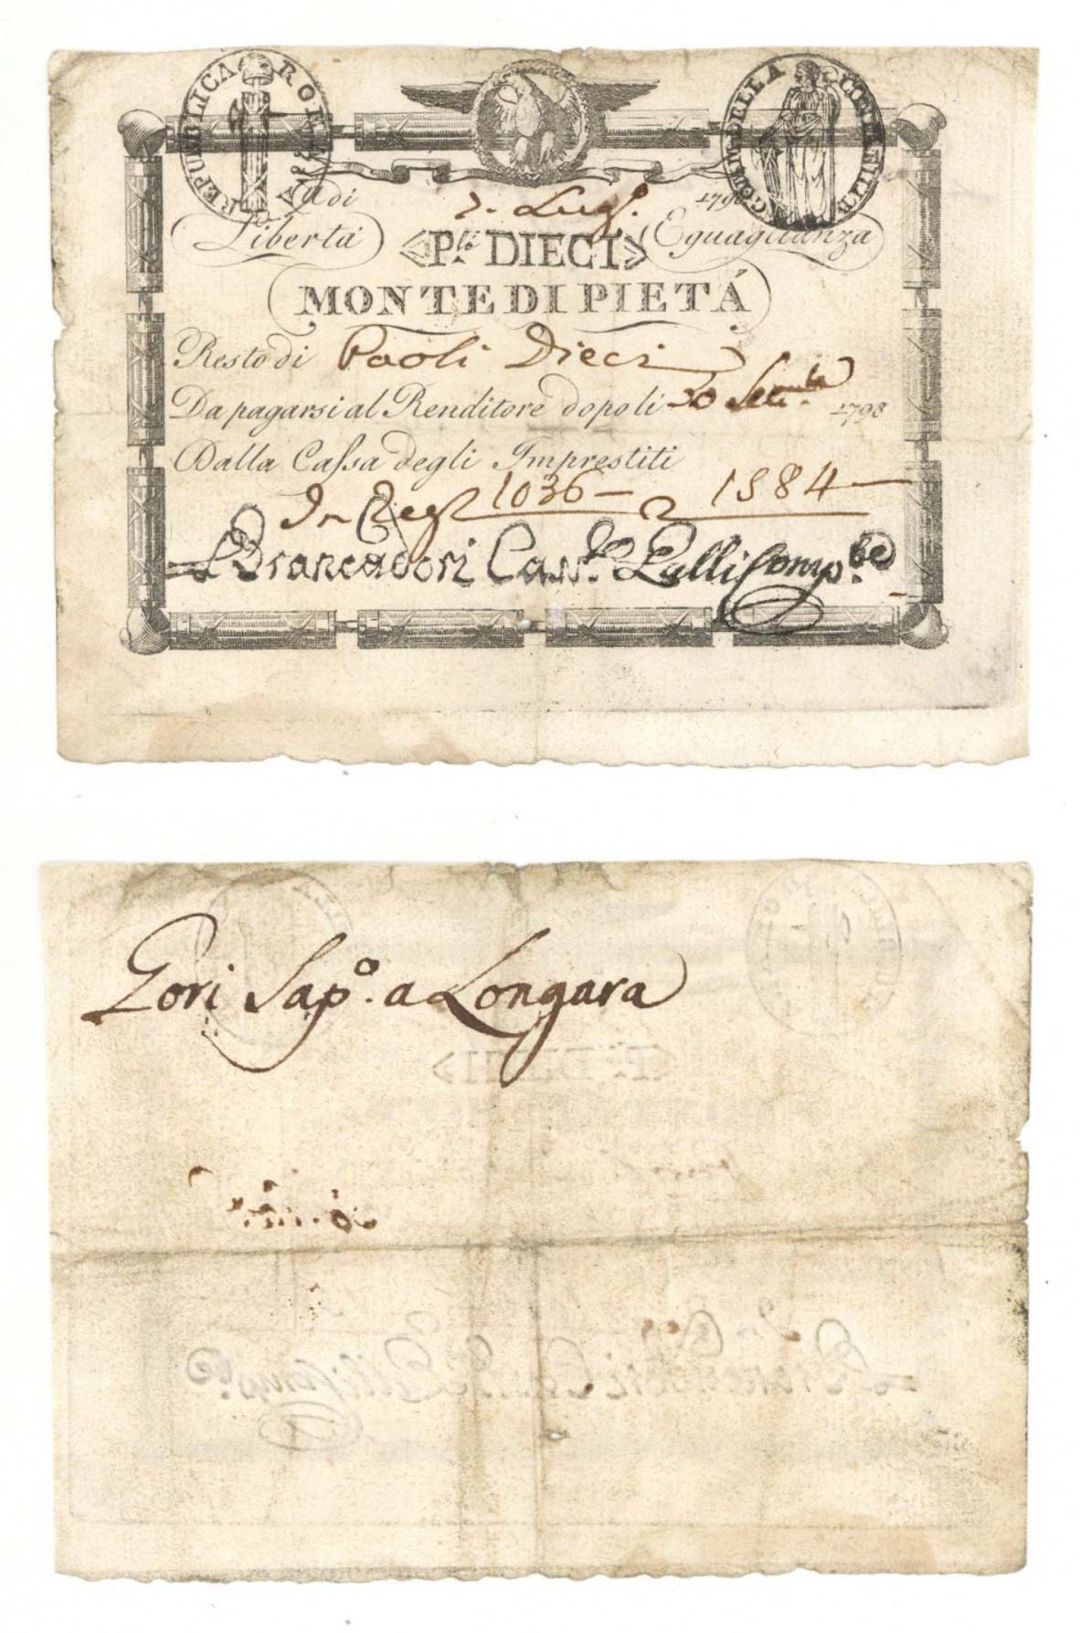 REPUBBLICA ROMANA
AGGIUN DELLA
Adi 7. Lugl. 179
Libertà <P.li DIECI> Eguaglianza
MONTE DI PIETÁ
Resto di Paoli Dieci
Da pagarsi al Renditore dopo li 30 Sett. 1798
Dalla Cassa degli Imprestiti
In Reg 1036 - 1384
Brancadori Cass.re Lalli Comp.be
Gori Sap.o a Longara